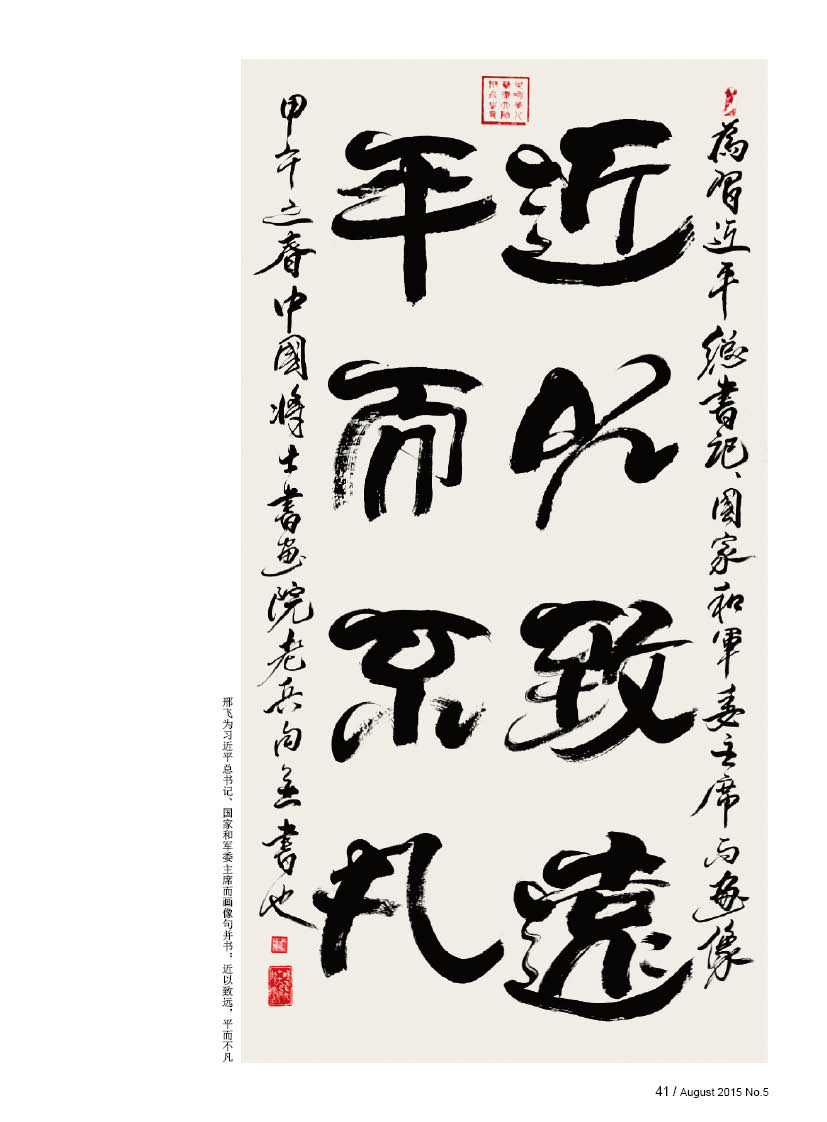 為習近平總書記、國家和軍委主席而畫像
近以致遠
平而不凡
甲午之春中國將士書畫院老兵句並書也
邢飞为习近平总书记、国家和军委主席而画像句并书：近以致远，平而不凡
41 / August 2015 No.5